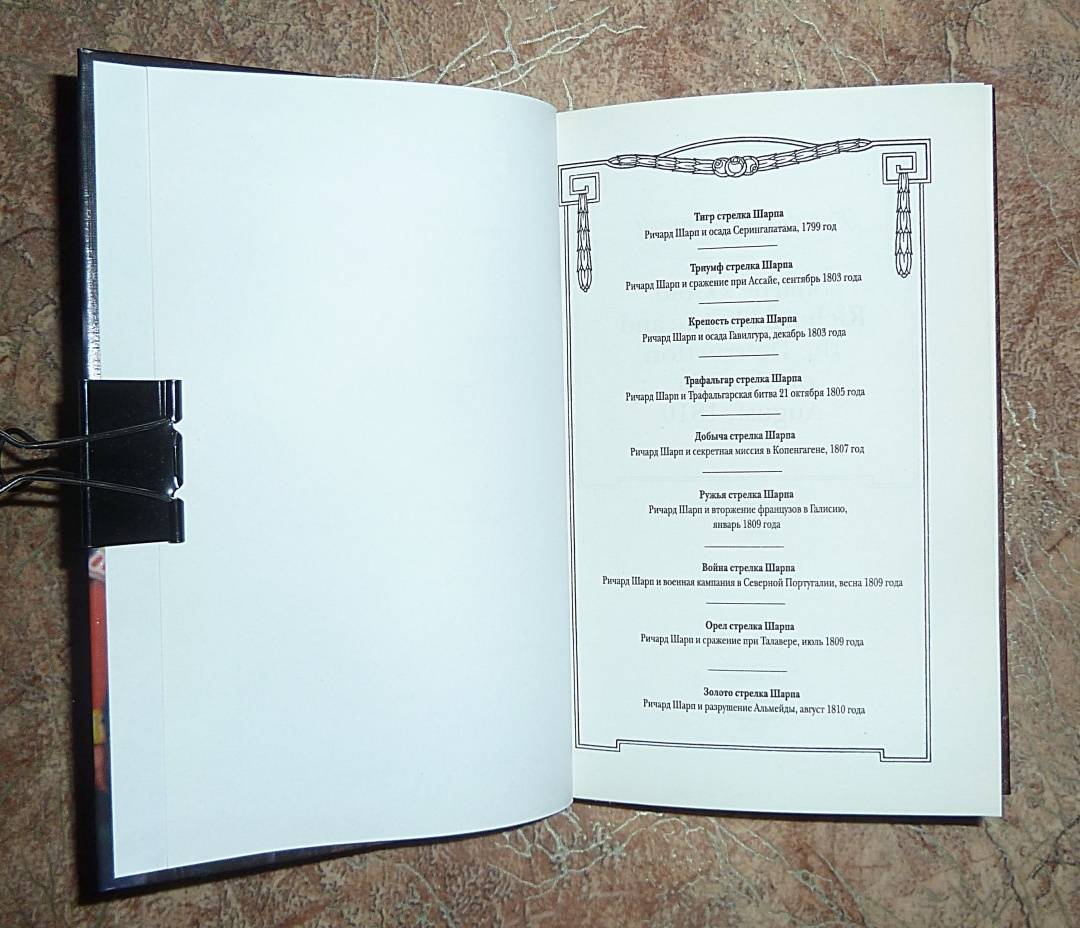 Тигр стрелка Шарпа
Ричард Шарп и осада Серингапатама, 1799 год
Триумф стрелка Шарпа
Ричард Шарп и сражение при Ассайе, сентябрь 1803 года
Крепость стрелка Шарпа
Ричард Шарп и осада Гавилгура, декабрь 1803 года
Трафальгар стрелка Шарпа
Ричард Шарп и Трафальгарская битва 21 октября 1805 года
Добыча стрелка Шарпа
Ричард Шарп и секретная миссия в Копенгагене, 1807 год
Ружья стрелка Шарпа
Ричард Шарп и вторжение французов в Галисию,
январь 1809 года
Война стрелка Шарпа
Ричард Шарп и военная кампания в Северной Португалии, весна 1809 года
Орел стрелка Шарпа
Ричард Шарп и сражение при Талавере, июль 1809 года
Золото стрелка Шарпа
Ричард Шарп и разрушение Альмейды, август 1810 года